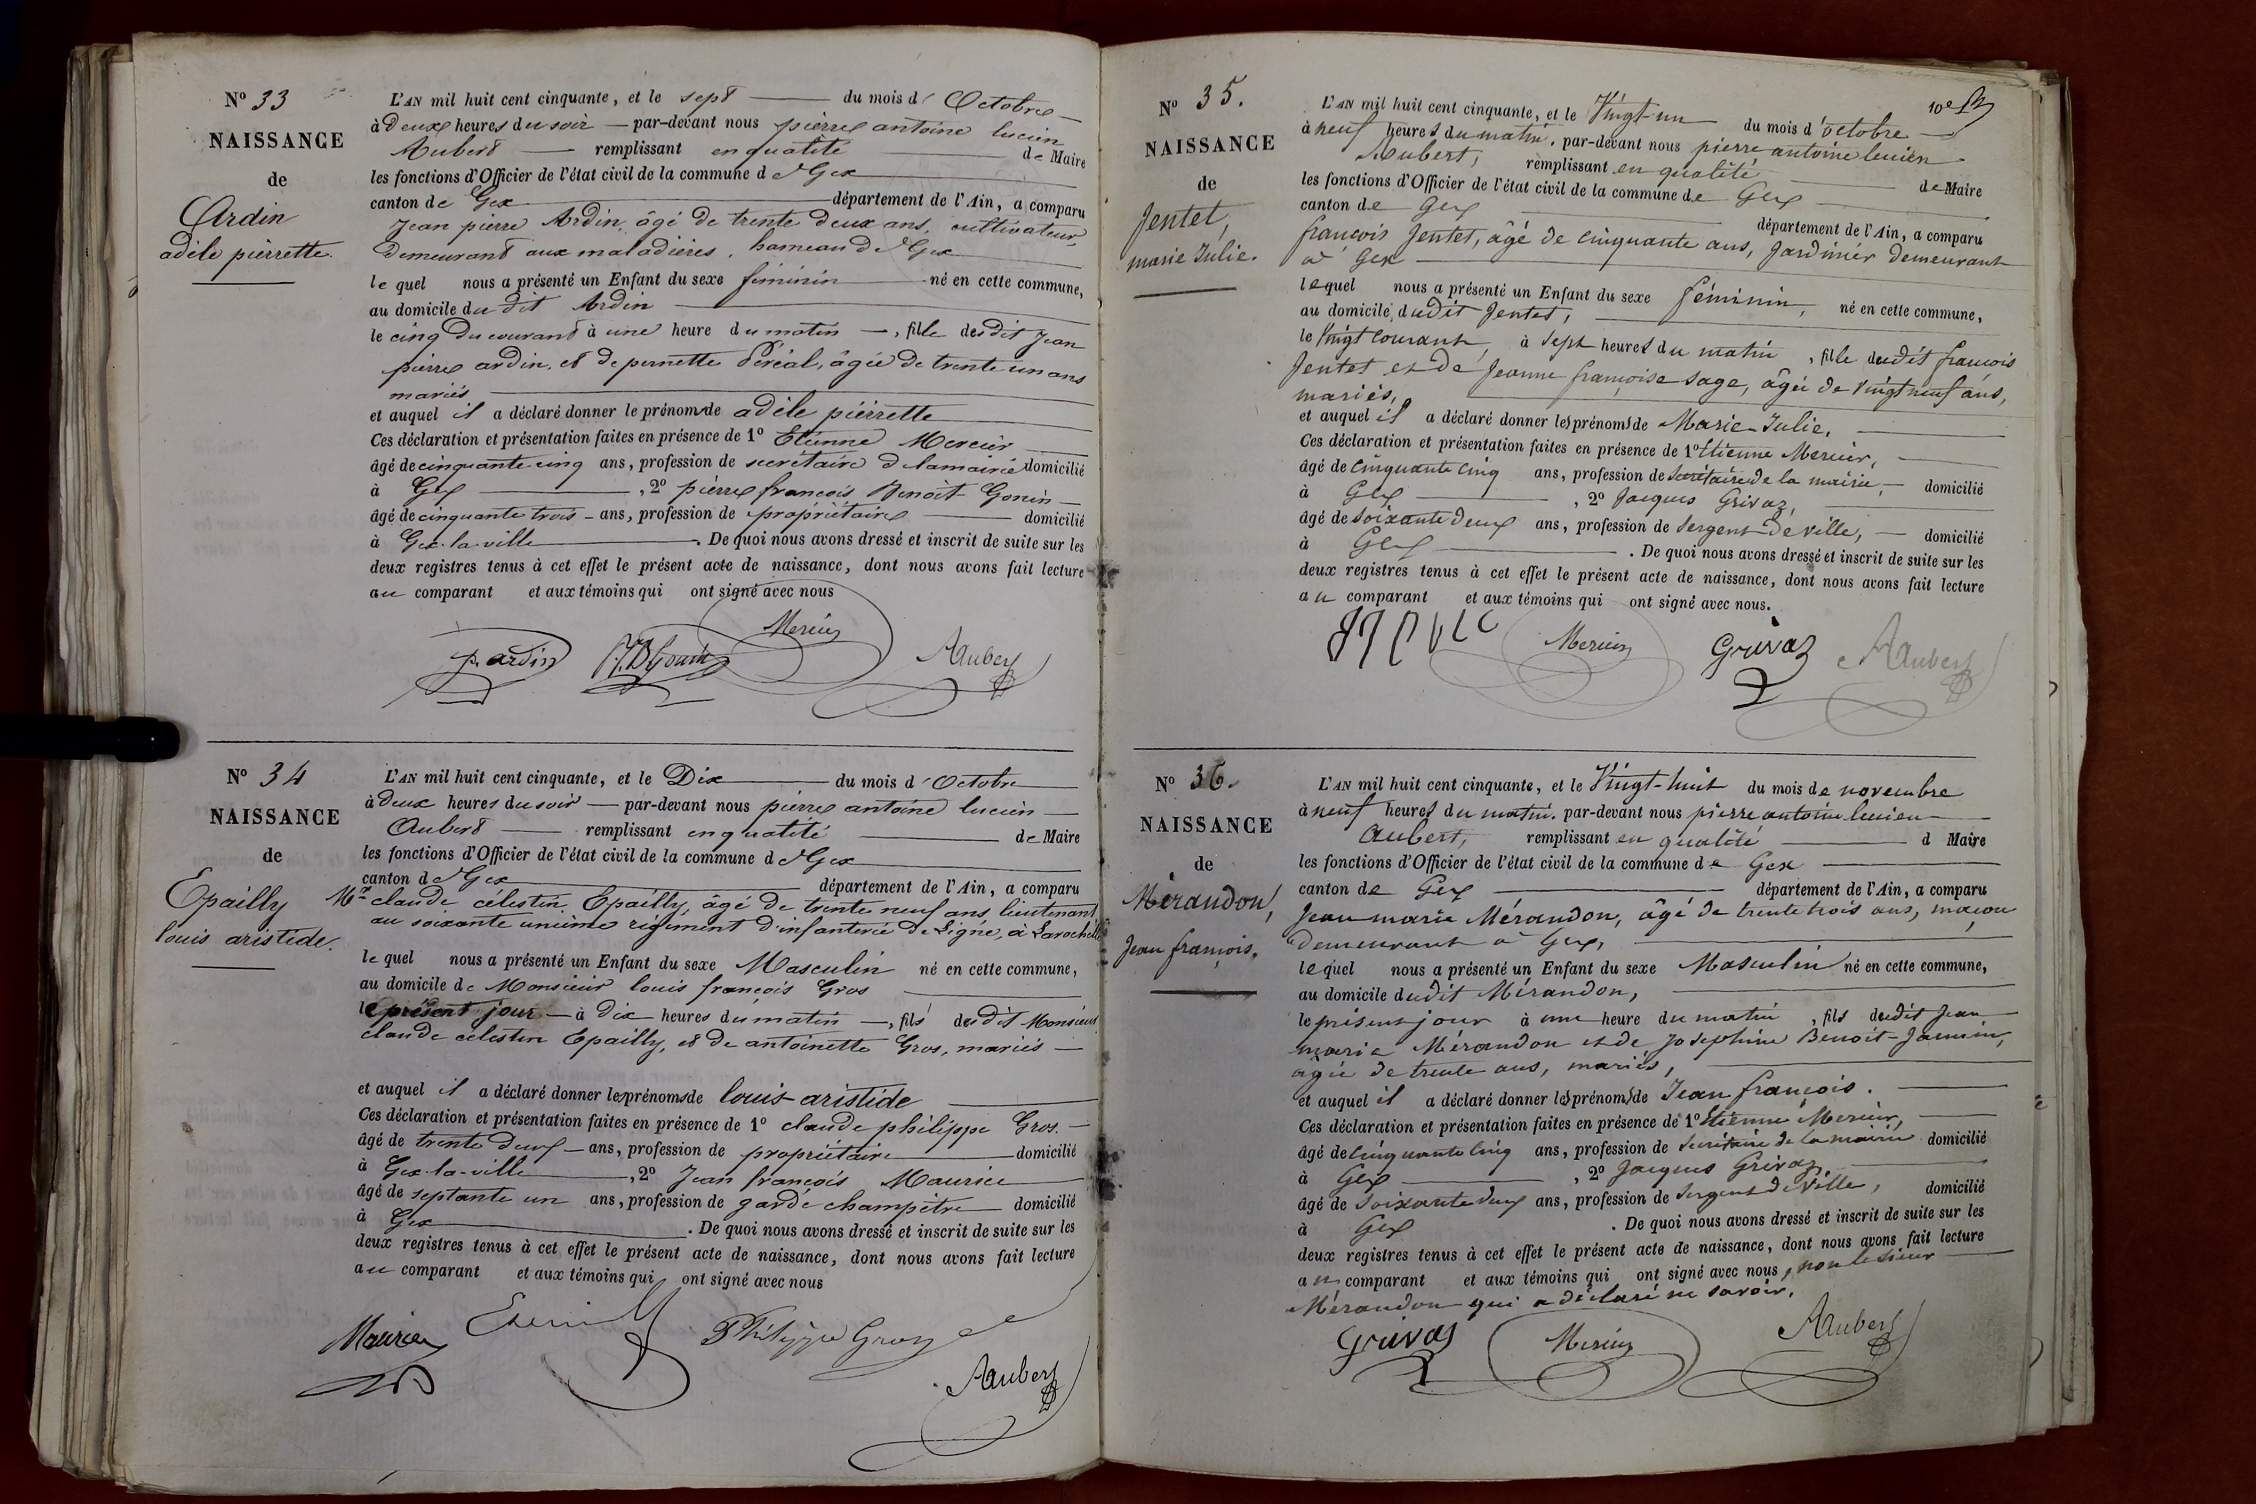 N° 33
NAISSANCE
de
Ardin
adèle pierrette.
L'AN mil huit cent cinquante, et le sept du mois d'Octobre
à deux heures du soir par-devant nous pierre antoine lucien
Aubert remplissant en qualité de Maire
les fonctions d'Officier de l'état civil de la commune de Gex
canton de Gex département de l'Ain, a comparu
Jean pierre Ardin, âgé de trente deux ans, cultivateur,
demeurant aux maladières, hameau de Gex
lequel nous a présenté un Enfant du sexe féminin né en cette commune,
au domicile du dit Ardin
le cinq du courant à une heure du matin, fille du dit Jean
pierre ardin, et de pernette Péréal, âgée de trente un ans
mariés
et auquel il a déclaré donner le prénom de adèle pierrette
Ces déclaration et présentation faites en présence de 1° Etienne Mercier
âgé de cinquante cinq ans, profession de secrétaire de la mairie domicilié
à Gex, 2° pierre françois Benoît-Gonin
âgé de cinquante trois ans, profession de propriétaire domicilié
à Gex-la-ville. De quoi nous avons dressé et inscrit de suite sur les
deux registres tenus à cet effet le présent acte de naissance, dont nous avons fait lecture
au comparant et aux témoins qui ont signé avec nous
Mercier
p. ardin Aubert
N° 34
NAISSANCE
de
Epailly
louis aristide.
L'AN mil huit cent cinquante, et le Dix du mois d'Octobre
à deux heures du soir par-devant nous pierre antoine lucien
Aubert remplissant en qualité de Maire
les fonctions d'Officier de l'état civil de la commune de Gex
canton de Gex département de l'Ain, a comparu
Mr claude célestin Epailly, âgé de trente neuf ans, lieutenant
au soixante unième régiment d'infanterie de Ligne, à Larochelle
lequel nous a présenté un Enfant du sexe Masculin né en cette commune,
au domicile de Monsieur louis françois Gros
le présent jour à dix heures du matin, fils du dit Monsieur
claude célestin Epailly, et de antoinette Gros, mariés
et auquel il a déclaré donner les prénoms de louis aristide
Ces déclaration et présentation faites en présence de 1° claude philippe Gros.
âgé de trente deux ans, profession de propriétaire domicilié
à Gex-la-ville, 2° Jean françois Maurice
âgé de septante un ans, profession de garde champêtre domicilié
à Gex. De quoi nous avons dressé et inscrit de suite sur les
deux registres tenus à cet effet le présent acte de naissance, dont nous avons fait lecture
au comparant et aux témoins qui ont signé avec nous
Maurice Philippe Gros
Aubert
N° 35.
NAISSANCE
de
Jentet,
marie Julie.
L'AN mil huit cent cinquante, et le Vingt-un du mois d'octobre
à neuf heures du matin, par-devant nous pierre antoine lucien
Aubert, remplissant en qualité de Maire
les fonctions d'Officier de l'état civil de la commune de Gex
canton de Gex département de l'Ain, a comparu
françois Jentet, âgé de cinquante ans, Jardinier demeurant
à Gex
lequel nous a présenté un Enfant du sexe féminin, né en cette commune,
au domicile dudit Jentet,
le Vingt courant, à sept heures du matin, fille dudit françois
Jentet et de Jeanne françoise Sage, âgée de Vingt neuf ans,
mariés,
et auquel il a déclaré donner les prénoms de Marie-Julie.
Ces déclaration et présentation faites en présence de 1° Etienne Mercier,
âgé de cinquante cinq ans, profession de Secrétaire de la mairie, domicilié
à Gex, 2° Jacques Grivaz,
âgé de soixante deux ans, profession de sergent de ville, domicilié
à Gex. De quoi nous avons dressé et inscrit de suite sur les
deux registres tenus à cet effet le présent acte de naissance, dont nous avons fait lecture
au comparant et aux témoins qui ont signé avec nous.
Mercier Grivaz Aubert
N° 36.
NAISSANCE
de
Mérandon,
Jean françois.
L'AN mil huit cent cinquante, et le Vingt-huit du mois de novembre
à neuf heures du matin, par-devant nous pierre antoine lucien
Aubert, remplissant en qualité d Maire
les fonctions d'Officier de l'état civil de la commune de Gex
canton de Gex département de l'Ain, a comparu
Jean marie Mérandon, âgé de trente trois ans, maçon
demeurant à Gex,
lequel nous a présenté un Enfant du sexe Masculin né en cette commune,
au domicile dudit Mérandon,
le présent jour à une heure du matin, fils dudit Jean
marie Mérandon et de Josephine Benoit-Jannin,
âgée de trente ans, mariés,
et auquel il a déclaré donner les prénoms de Jean françois.
Ces déclaration et présentation faites en présence de 1° Etienne Mercier,
âgé de cinquante cinq ans, profession de Secrétaire de la mairie domicilié
à Gex, 2° Jacques Grivaz,
âgé de soixante deux ans, profession de sergent de ville, domicilié
à Gex. De quoi nous avons dressé et inscrit de suite sur les
deux registres tenus à cet effet le présent acte de naissance, dont nous avons fait lecture
au comparant et aux témoins qui ont signé avec nous, non le sieur
Mérandon qui a déclaré ne savoir.
Grivas Mercier Aubert